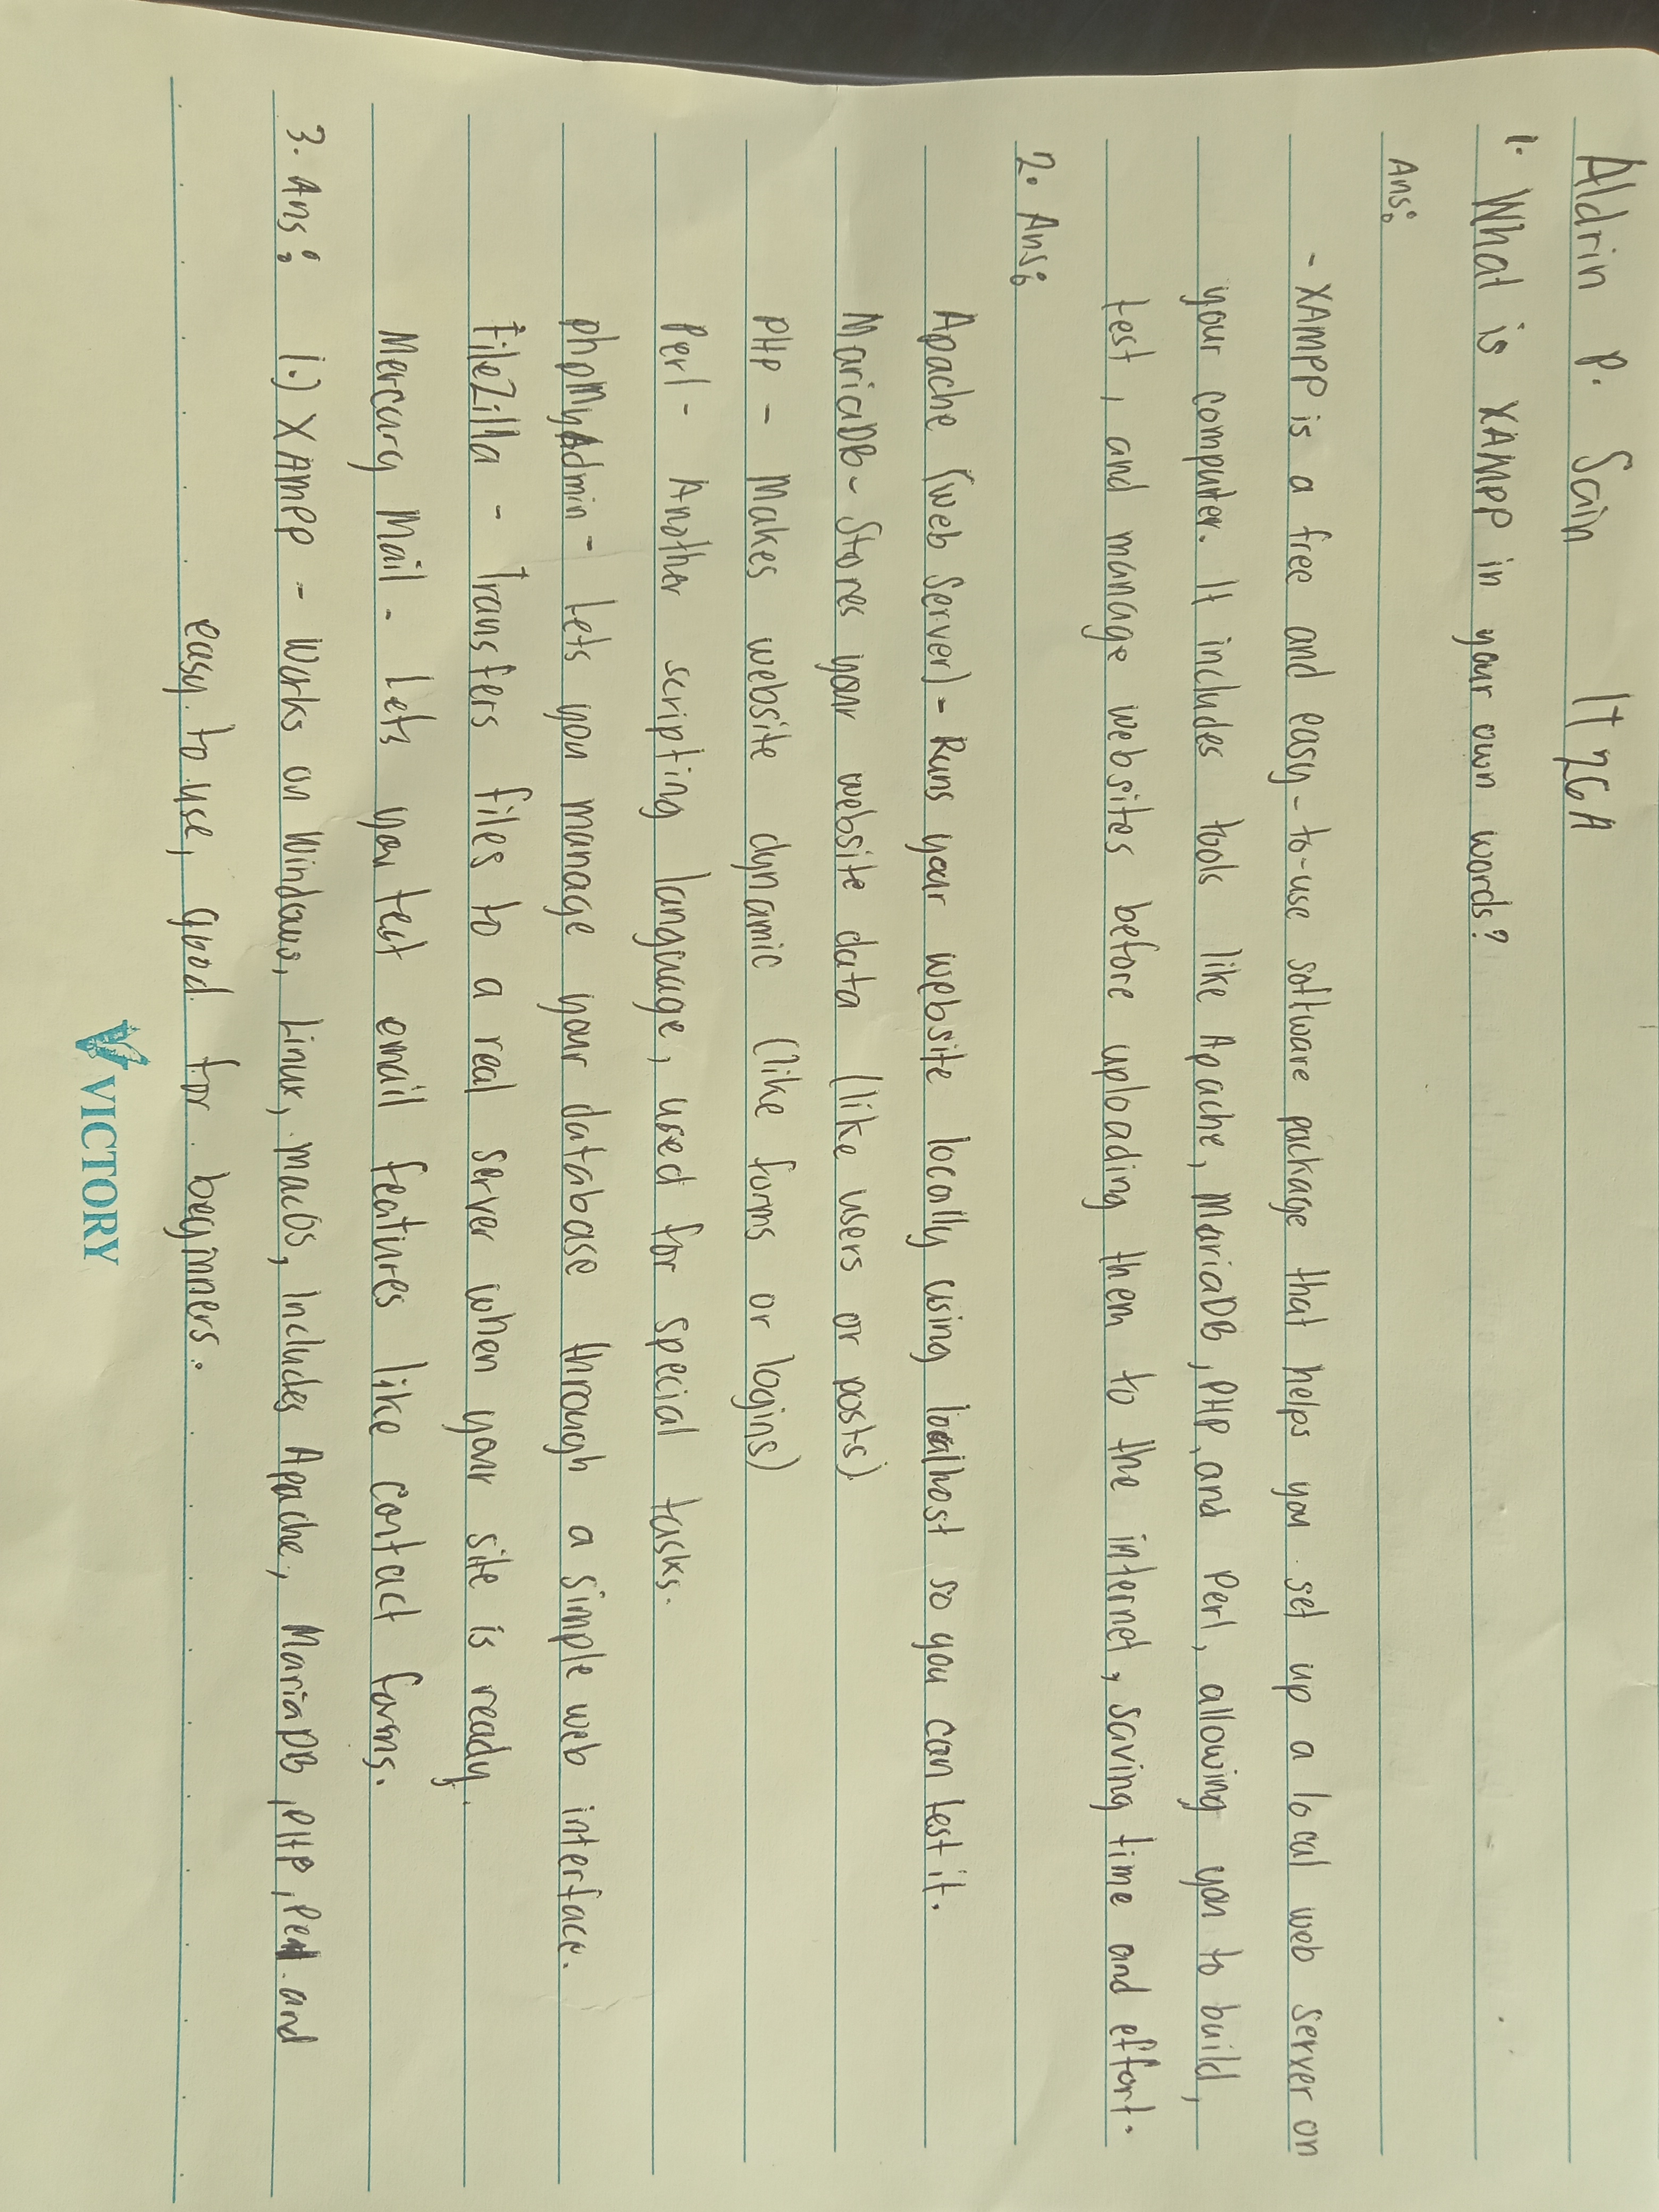 Aldrin P. Sain IT 2GA
1. What is XAMPP in your own words?
Ans:
- XAMPP is a free and easy-to-use software package that helps you set up a local web server on
your computer. It includes tools like Apache, MariaDB, PHP, and Perl, allowing you to build,
test, and manage websites before uploading them to the internet, saving time and effort.
2. Ans:
Apache (Web Server) - Runs your website locally using localhost so you can test it.
MariaDB - Stores your website data (like users or posts)
PHP - Makes website dynamic (like forms or logins)
Perl - Another scripting language, used for special tasks.
phpMyAdmin - Lets you manage your database through a simple web interface.
FileZilla - Transfers files to a real server when your site is ready.
Mercury Mail - Lets you test email features like contact forms.
3. Ans: 1.) XAMPP - Works on Windows, Linux, macOS, Includes Apache, MariaDB, PHP, Perl and
easy to use, good for beginners.
VICTORY